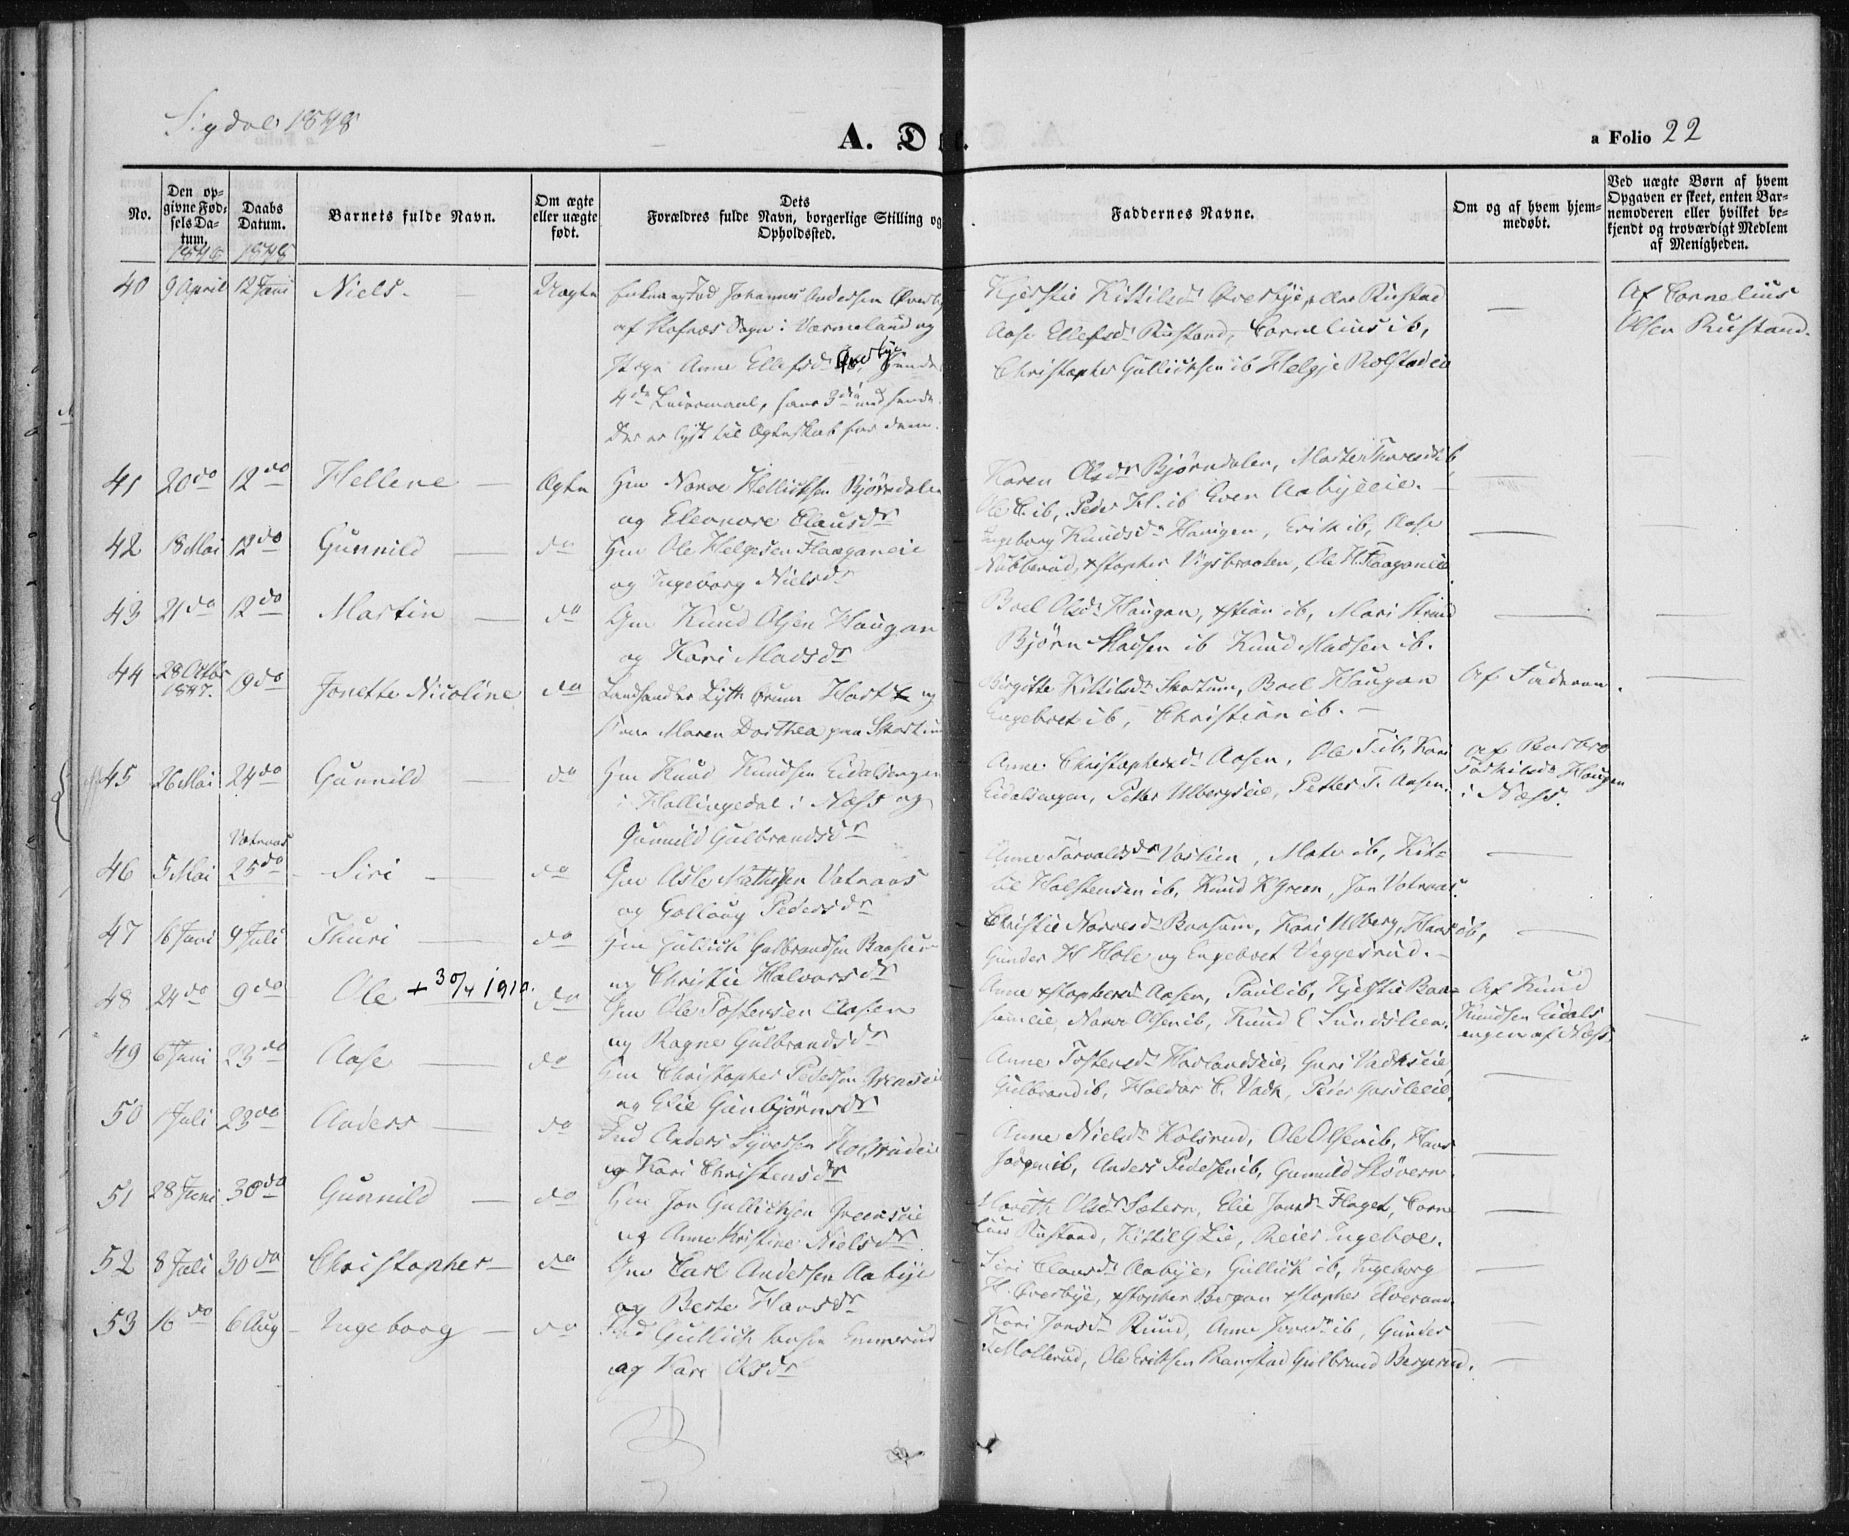 Sigdal 1848
A. D
a Folio 22
No.
Den op-
givne Fød-
sels Da-
tum.
1848
Daabs
Datum.
1848
Barnets fulde Navn.
Om ægte
eller uægte
født.
Dets
Forældres fulde Navn, borgerlige Stilling og
Opholdssted.
Faddernes Navne.
Om og af hvem hjem-
medøbt.
Ved uægte Børn af hvem
Opgaven er skeet, enten Bar-
nemoderen eller hvilket be-
kjendt og troværdigt Medlem
af Menigheden.
40 9 April 12 Juni Niels - Uægte Johannes Andersen Øverby
af Sogn i Værmeland og
Pige Anne Ellefsdr
4de Leiermaal, hans 3die med hende.
Der er lyst til Ægteskab for dem.
Kjerstie Kittilsdr Øverbye, Rustad
Aase Ellefsdr Rustand, Cornelius ib,
Christopher Gullichsen ib Helgje Rolstadeie
Af Cornelius
Olsen Rustand.
41 20 do 12 do Hellene - Ægte Gm Narve Hellichsen Bjørndalen
og Eleonore Clausdr
Karen Olsdr Bjørndalen,
Ole C. ib, Peder H. ib Even Aabyeeie.
42 18 Mai 12 do Gunnild - do Gm Ole Helgesen Haaganeie
og Ingeborg Nielsdr
Ingeborg Knudsdr Haugen, Erik ib, Aase
Nubberud, xstopher Vigsbraaten, Ole H. Haaganeie
43 21 do 12 do Martin - do Gm Knud Olsen Haugan
og Kari Madsdr
Boel Olsdr Haugan, xstian ib, Mari Strand
Bjørn Madsen ib Knud Madsen ib.
44 28 Octbr
1847. 19 do Jonette Nicoline do Landhandler Lytth Hartz og
Kone Maren Dorthea paa Skartum
Birgitte Kittilsdr Skartum, Boel Haugan
Engebret ib, Christian ib.
Af Faderen.
45 26 Mai 24 do Gunnild - do Gm Knud Knudsen Eidalsengen
i Hallingdal i Næss og
Gunnild Gulbrandsdr
Anne Christophersdr Aasen, Ole T. ib, Kari
Eidalsengen, Petter Ulbergseie, Petter T. Aasen.
Af
Torkilsdr Haugen
i Næss.
Vatnaas
46 5 Mai 25 do Siri - do Gm Asle Vatnaas
og Gollaug Pedersdr
Anne Torvaldsdr Vaslien, ib, Kit-
til Halstensen ib, Knud K Green, Jon Vatnaas
47 16 Juni 9 Juli Thuri - do Gm Gullich Gulbrandsen Baasum
og Christie Halvorsdr
Christie Narvesdr Baasum, Kari Ulberg, Hans ib,
Gunder H Hole og Engebret Veggesrud.
48 24 do 9 do Ole + 30/4 1910. do Gm Ole Tostensen Aasen
og Ragne Gulbrandsdr
Anne xstophersdr Aasen, Paul ib, Kjerstie Baa-
sumeie, Narve Olsen ib, Knud E Sundslien.
Af Knud
Knudsen Eidals
engen af Næss.
49 6 Juni 23 do Aase - do Gm Christopher Pedersen
og Elie Gunbjørnsdr
Anne Tostensdr Harlandseie, Guri
Gulbrand ib, Haldor C.
50 1 Juli 23 do Anders - do Ind Anders Syversen Kolsrudeie
og Kari Christensdr
Anne Nielsdr Kolsrud, Ole Olsen ib, Hans
Jørgen ib, Anders Pedersen ib, Gunnild Støvern.
51 28 Juni 30 do Gunnild - do Gm Jon Gullichsen Greenseie
og Anne Kristine Nielsdr
Olsdr Sætern, Elie Jonsdr Flaget, Corne
lius Rustand, Kittil G Lie, Reier Ingeboe.
52 8 Juli 30 do Christopher - do Gm Carl Andersen Aabye
og Berte Hansdr
Siri Clausdr Aabye, Gullich ib, Ingeborg
H. Øverbye, xstopher Bergan xstopher
53 16 do 6 Aug - Ingeborg - do Ind Gullich Emmerud
og Kari Olsdr
Kari Jonsdr Ruud, Anne Jonsdr ib, Gunder
Mollerud, Ole Eriksen Ramstad Gulbrand Bergerud.